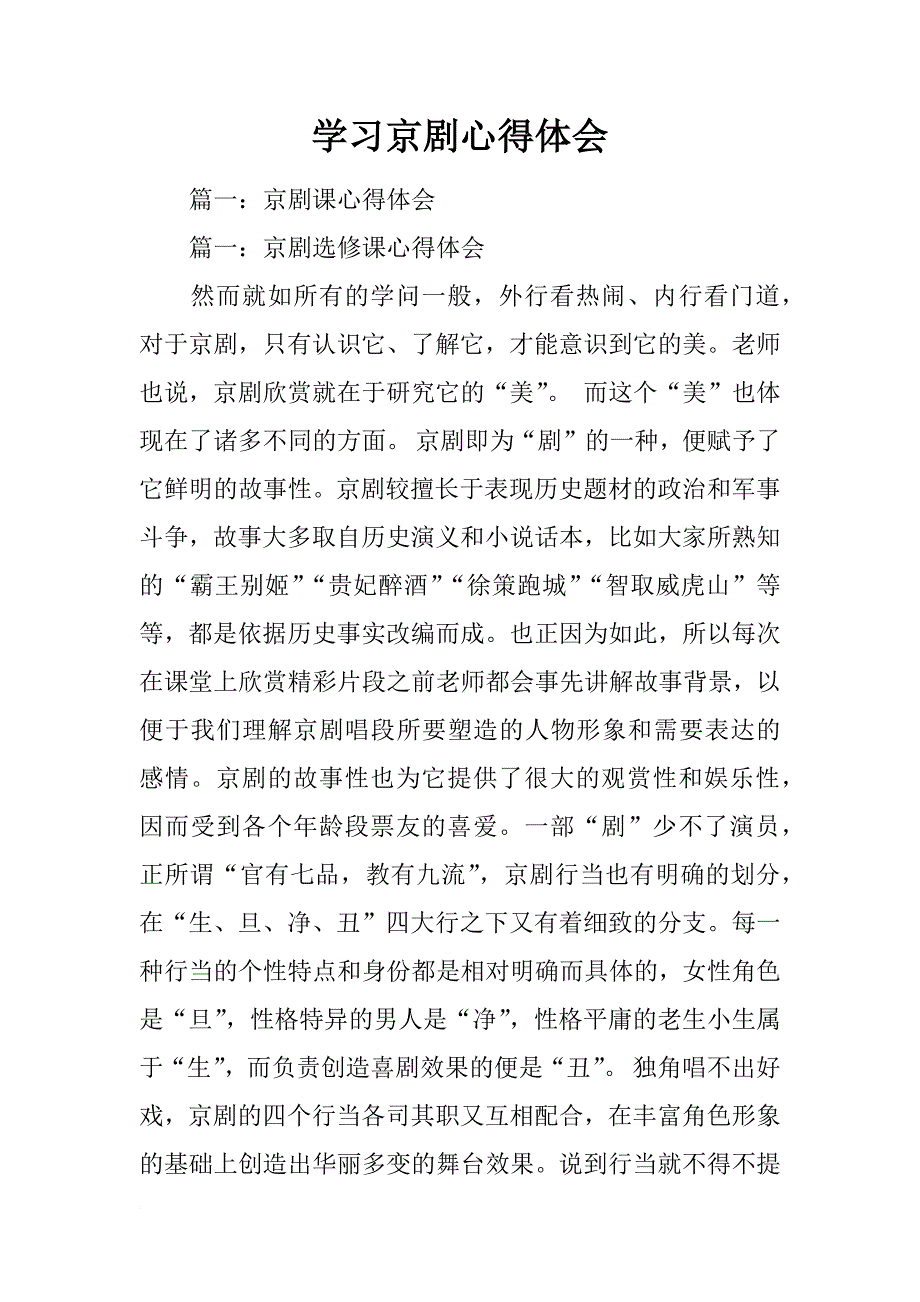 学习京剧心得体会
篇一：京剧课心得体会
篇一：京剧选修课心得体会
然而就如所有的学问一般，外行看热闹、内行看门道，
对于京剧，只有认识它、了解它，才能意识到它的美。老师
也说，京剧欣赏就在于研究它的“美”。 而这个“美”也体
现在了诸多不同的方面。 京剧即为“剧”的一种，便赋予了
它鲜明的故事性。京剧较擅长于表现历史题材的政治和军事
斗争，故事大多取自历史演义和小说话本，比如大家所熟知
的“霸王别姬”“贵妃醉酒”“徐策跑城”“智取威虎山”等
等，都是依据历史事实改编而成。也正因为如此，所以每次
在课堂上欣赏精彩片段之前老师都会事先讲解故事背景，以
便于我们理解京剧唱段所要塑造的人物形象和需要表达的
感情。京剧的故事性也为它提供了很大的观赏性和娱乐性，
因而受到各个年龄段票友的喜爱。一部“剧”少不了演员，
正所谓“官有七品，教有九流”，京剧行当也有明确的划分，
在“生、旦、净、丑”四大行之下又有着细致的分支。每一
种行当的个性特点和身份都是相对明确而具体的，女性角色
是“旦”，性格特异的男人是“净”，性格平庸的老生小生属
于“生”，而负责创造喜剧效果的便是“丑”。 独角唱不出好
戏，京剧的四个行当各司其职又互相配合，在丰富角色形象
的基础上创造出华丽多变的舞台效果。说到行当就不得不提